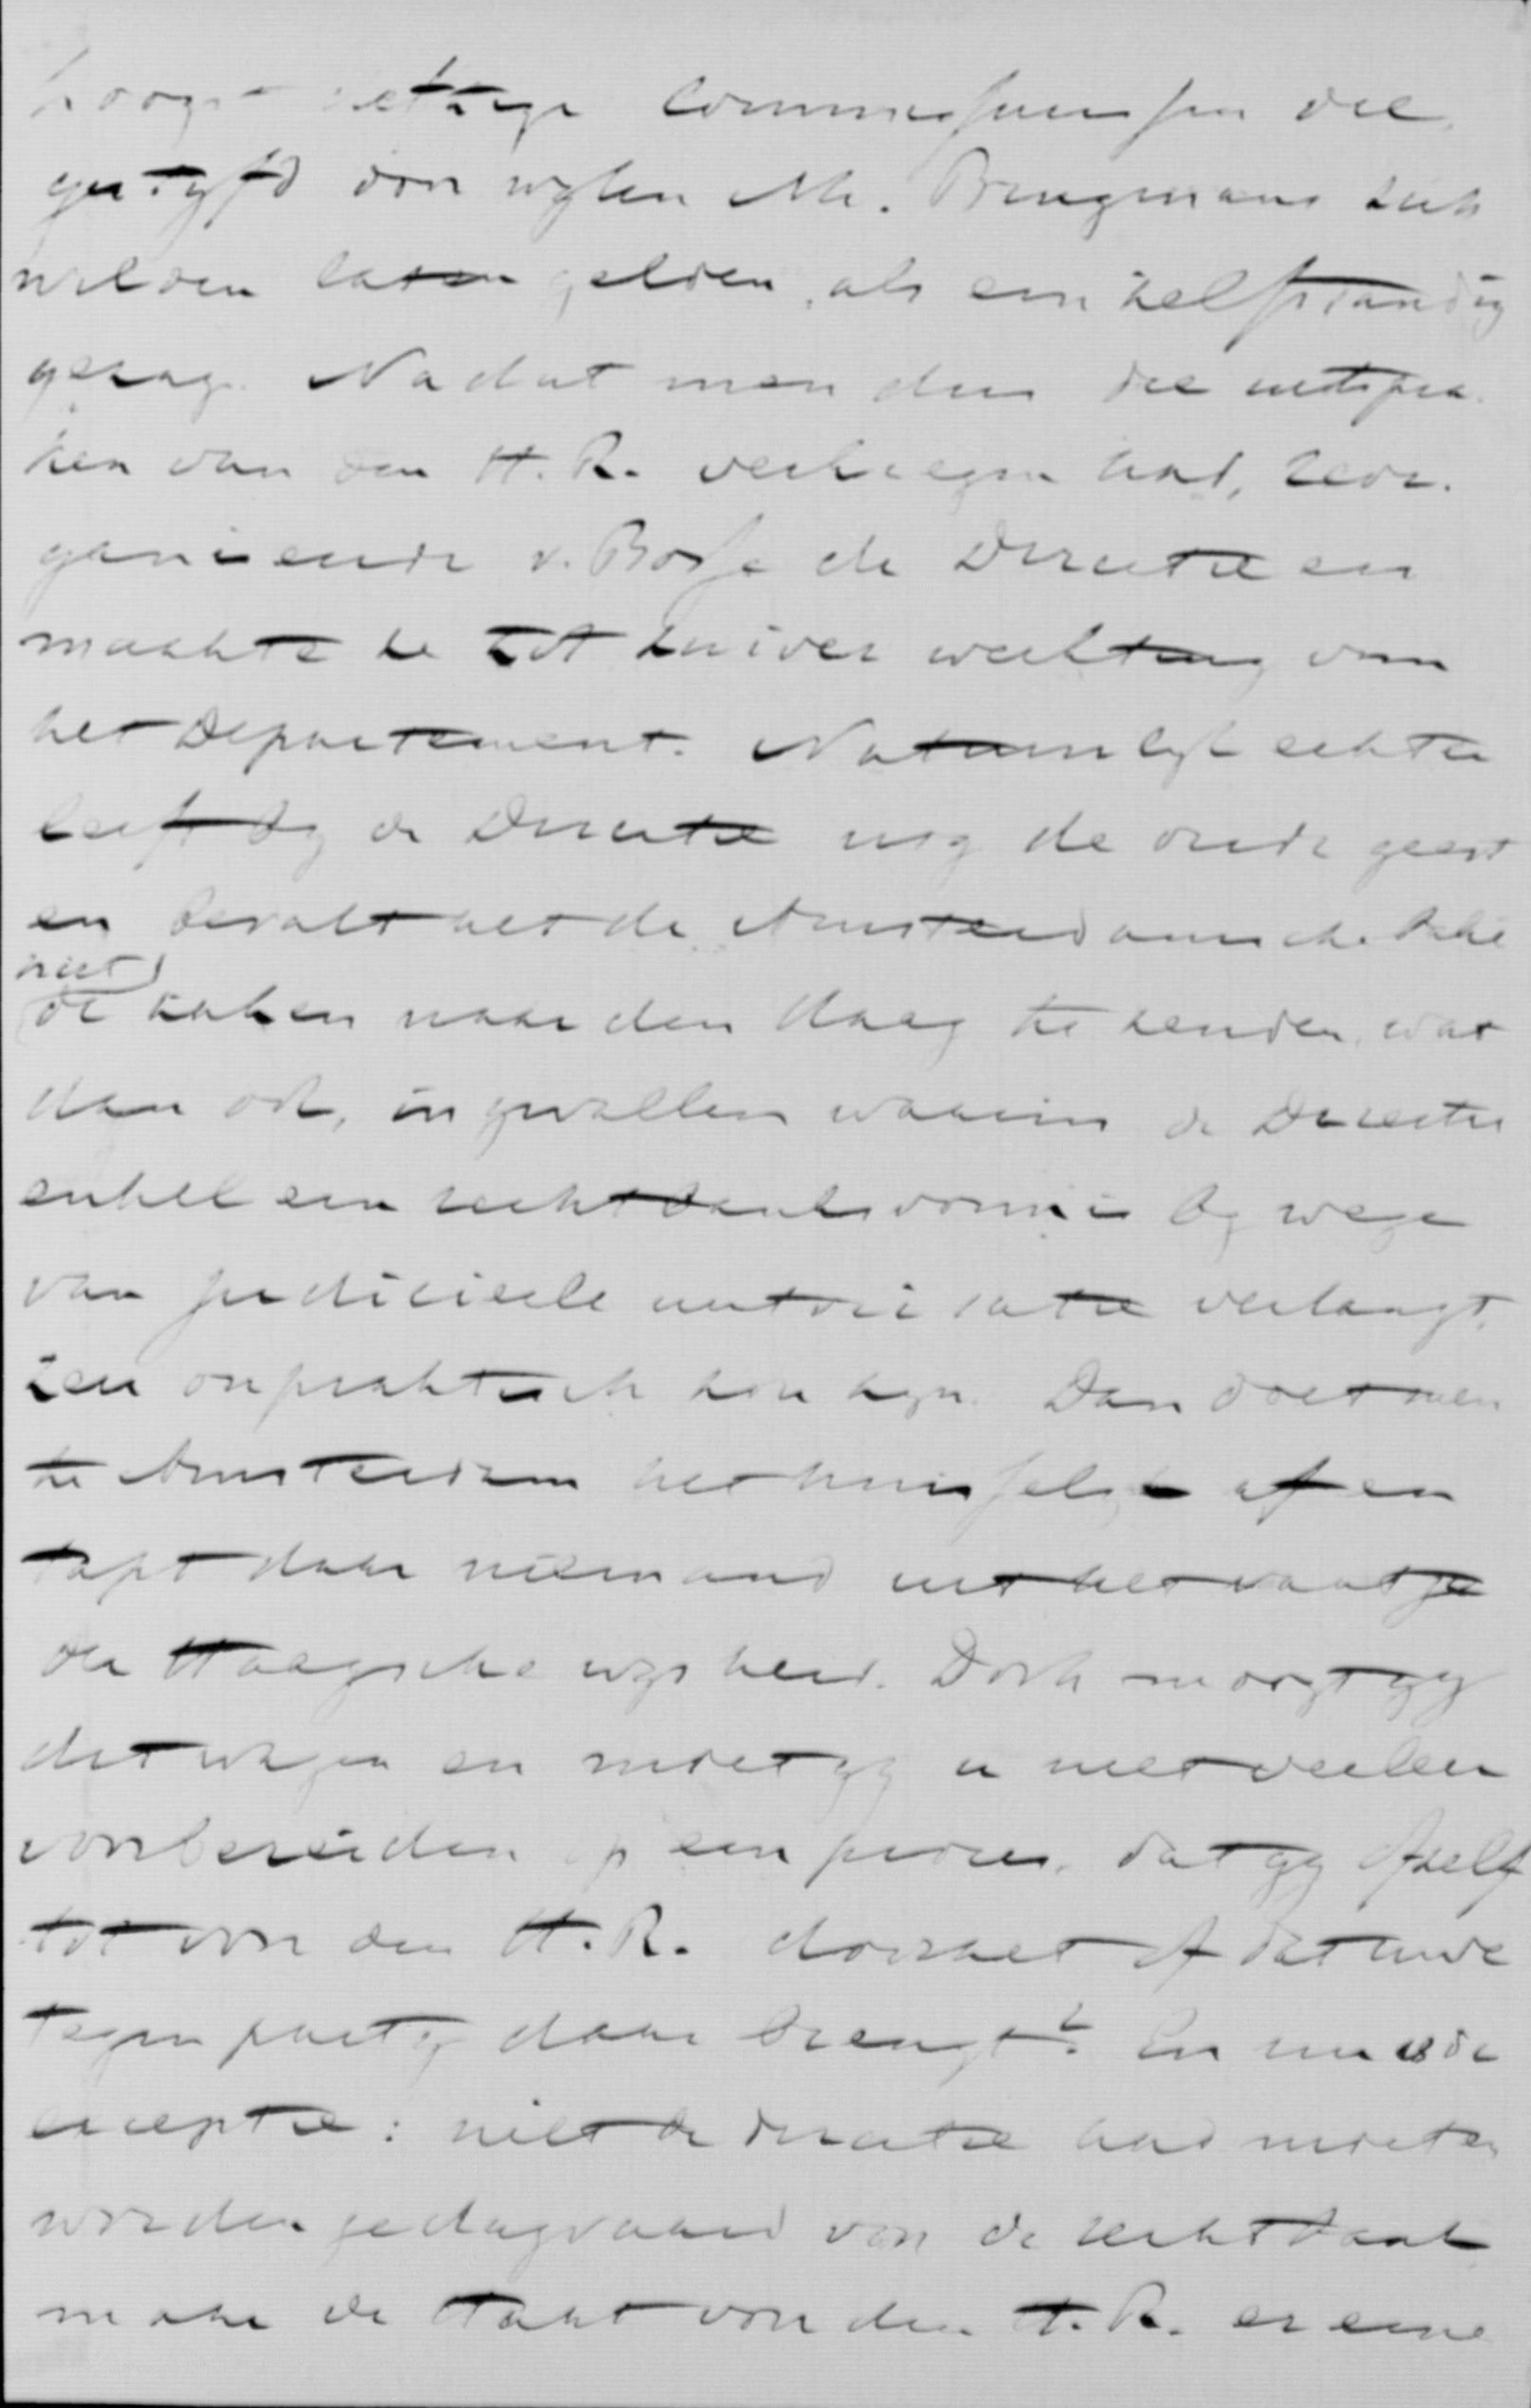 hoogst deftige Commissarissen die
gestyfd door wylen Mr. Brugmans zich
wilden laten gelden, als een zelfstandig
gezag. Nadat men dus die uitspra-
ken van den H.R. verkregen had, reor-
ganiseerde v. Bosse de Directie en
maakte ze tot zuiver werktuig van
het Departement. Natuurlyk echter
leeft by de Directie nog de oude geest
en bevalt het de Amsterdamsche
niet
de zaken naar den Haag te zenden, wat
dan ook, in gevallen waarin de Directie
enkel een rechtbanksvonnis by wege
van judicieele autorisatie verlangt,
zeer onpraktisch zou zyn. Dan doet men
te Amsterdam het huisselyk af en
tapt daar niemand uit het vaatje
der Haagsche wysheid. Doch moogt gy
dit wagen en moet gy u niet veeleer
voorbereiden op een proces, dat gy ofzelf
tot voor den H.R. doorzet of dat uwe
tegenparty daar brengt? En nu is de
exceptie: niet de directie had moeten
worden gedagvaard voor de rechtbank
maar de Staat voor den H.R. er eene